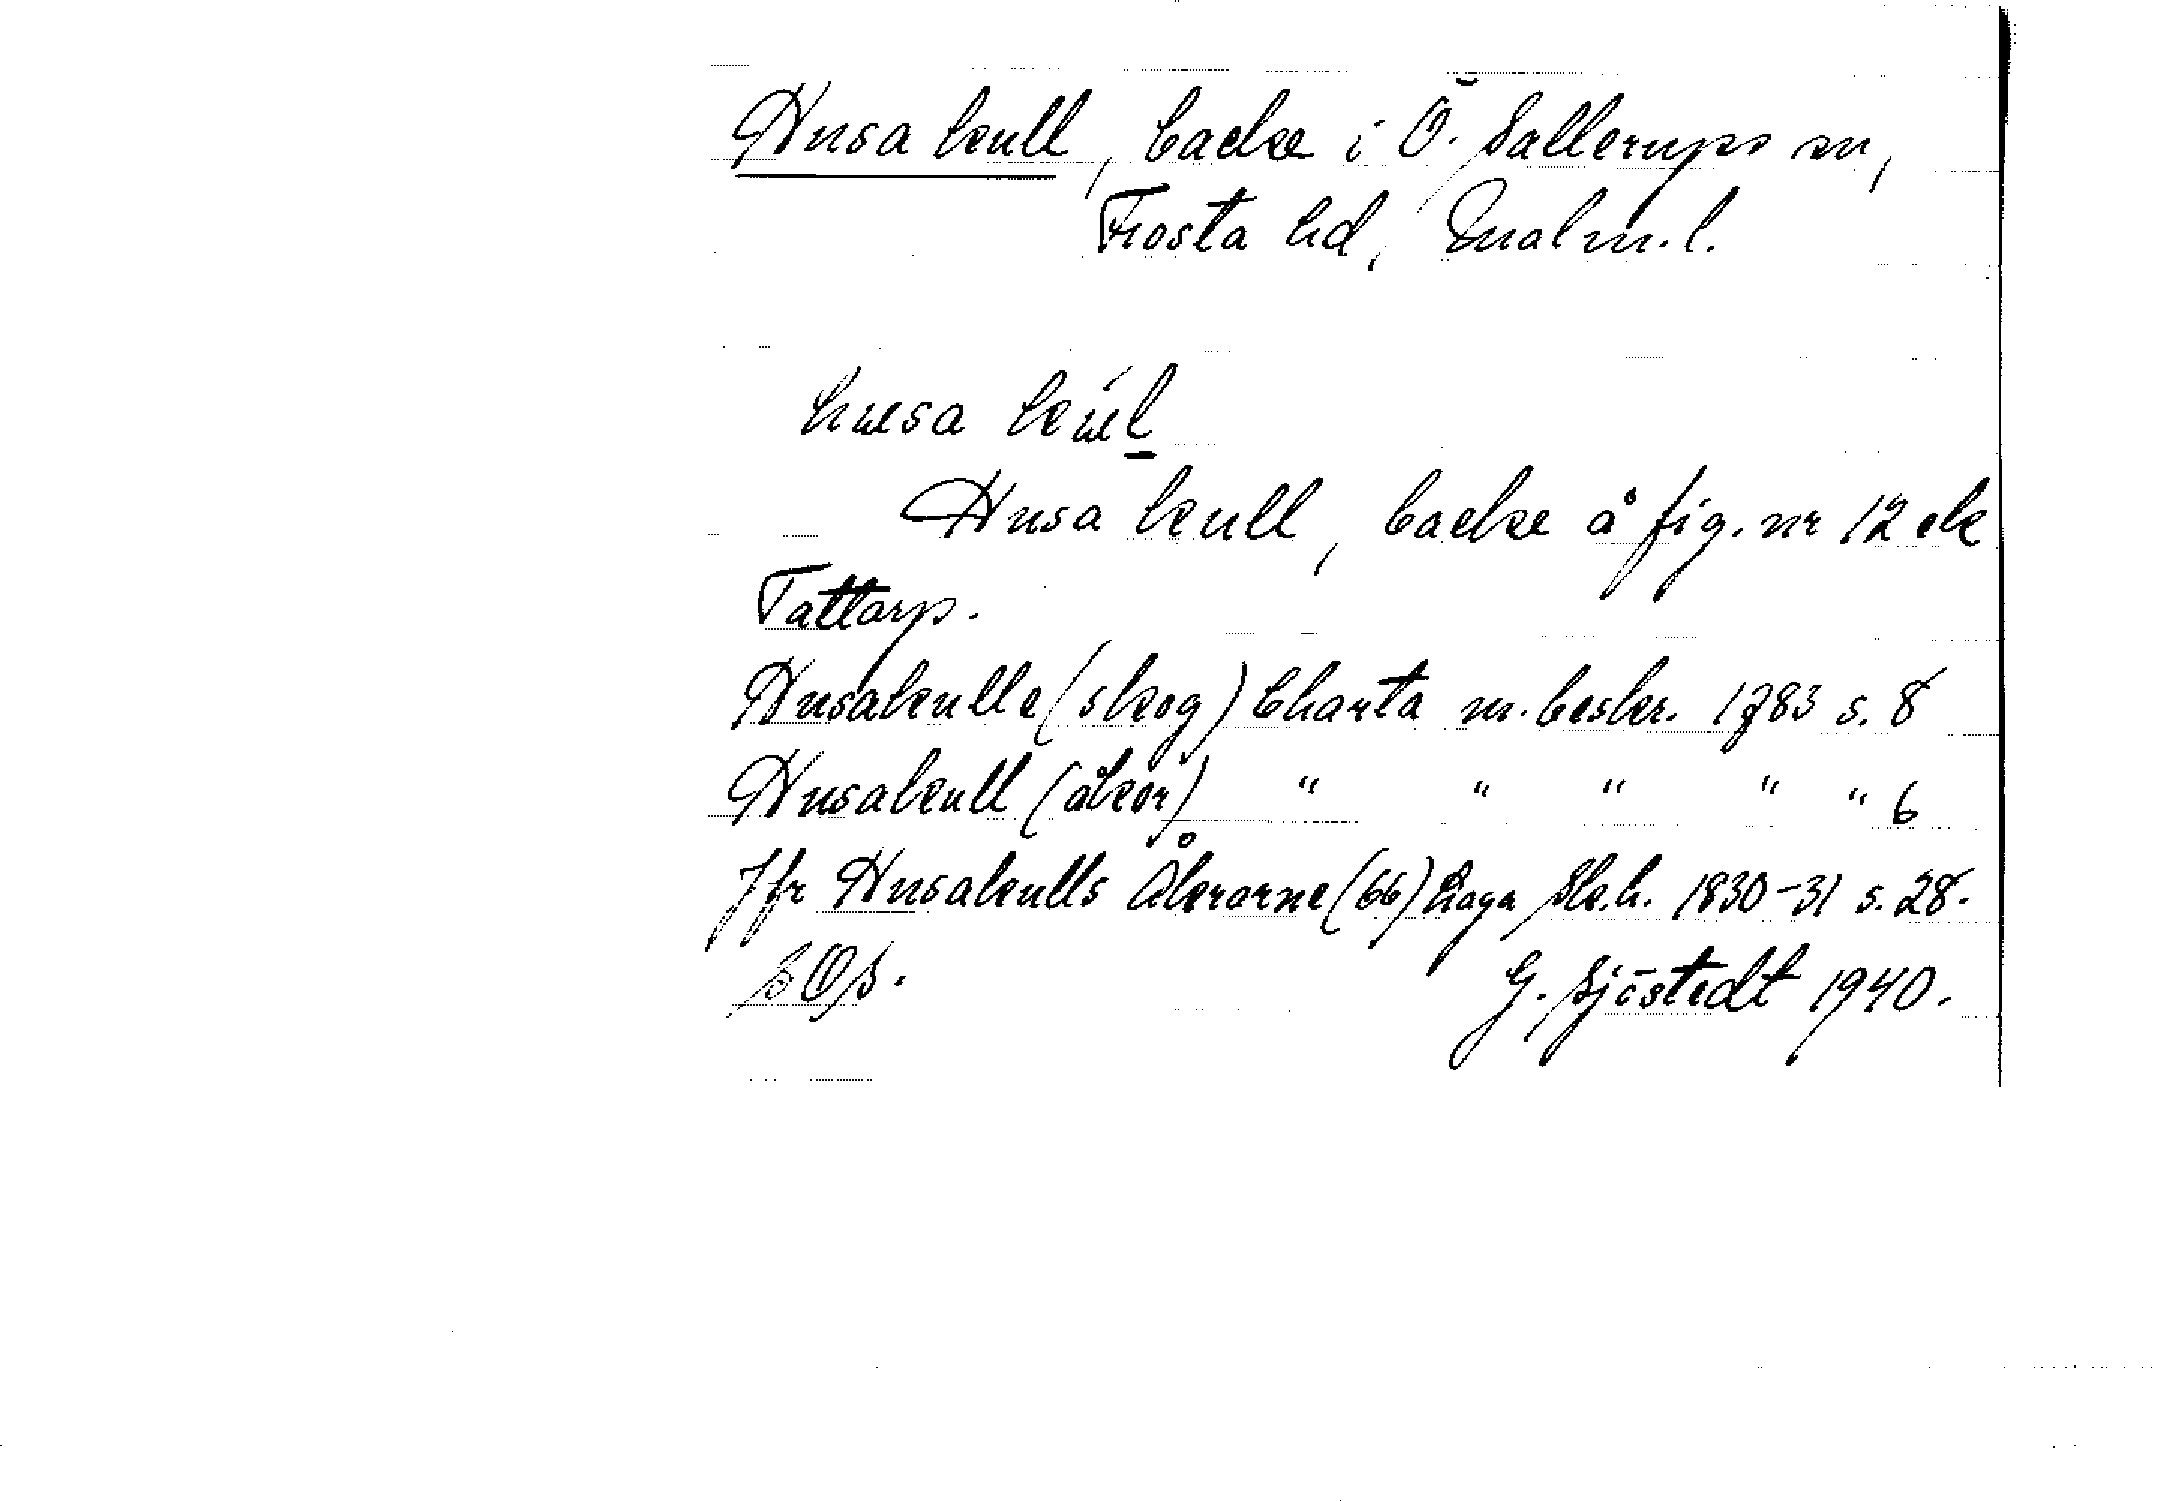 Husa kull, backe i Ö. Sallerups sn,
Frosta hd, Malm.l.
husa kúl
Husa kull, backe å fig. nr 12 ek
Tattarp.
Husakulle (skog) Charta m. beskr. 1783 s. 8
Husakull (åkor) " " " " " 6
Jfr Husakulls Åkrarne (66) Laga Sk.h. 1830-31 s. 28.
G. Sjöstedt 1940.